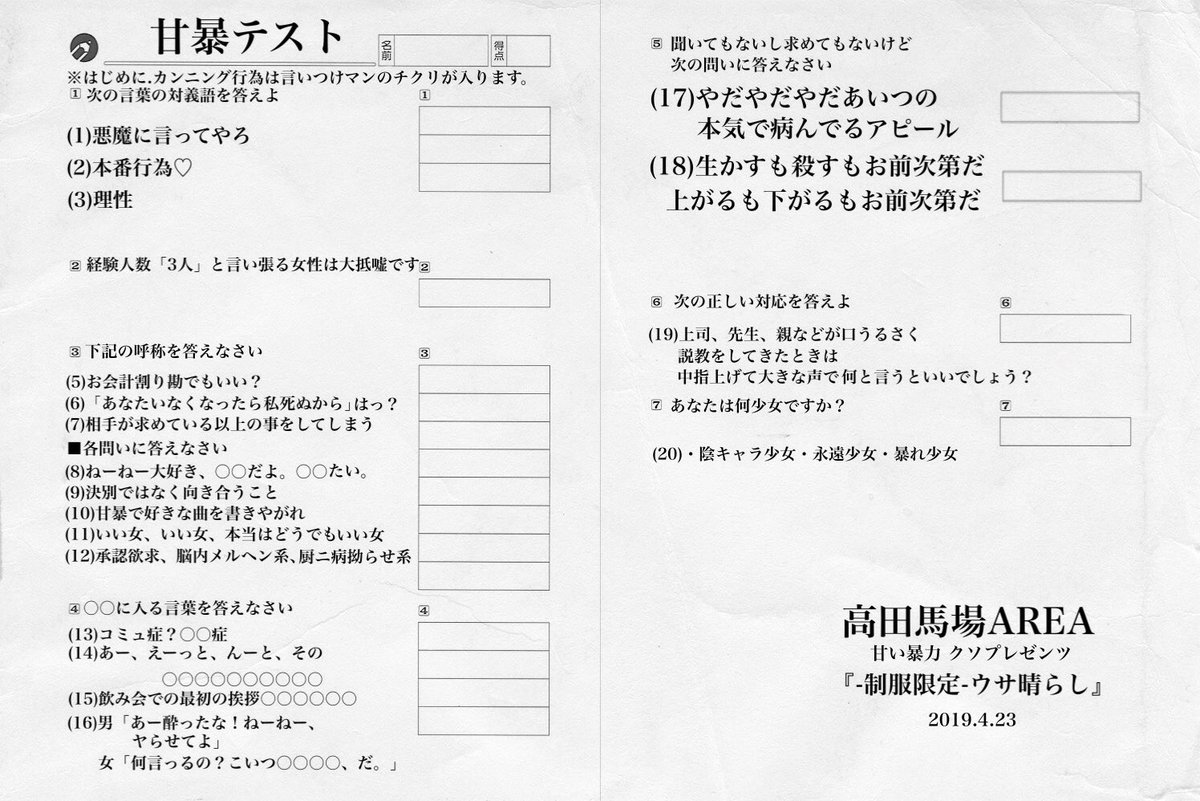 甘暴テスト
名前
得点
※はじめに.カンニング行為は言いつけマンのチクリが入ります。
① 次の言葉の対義語を答えよ
①
(1)悪魔に言ってやろ
(2)本番行為♡
(3)理性
② 経験人数「3人」と言い張る女性は大抵嘘です
②
③ 下記の呼称を答えなさい
③
(5)お会計割り勘でもいい？
(6)「あなたいなくなったら私死ぬから｣はっ？
(7)相手が求めている以上の事をしてしまう
■各問いに答えなさい
(8)ねーねー大好き、〇〇だよ。〇〇たい。
(9)決別ではなく向き合うこと
(10)甘暴で好きな曲を書きやがれ
(11)いい女、いい女、本当はどうでもいい女
(12)承認欲求、脳内メルヘン系、厨ニ病拗らせ系
④〇〇に入る言葉を答えなさい
④
(13)コミュ症？〇〇症
(14)あー、えーっと、んーと、その
〇〇〇〇〇〇〇〇〇〇
(15)飲み会での最初の挨拶〇〇〇〇〇〇
(16)男「あー酔ったな！ねーねー、
ヤらせてよ」
女「何言っるの？こいつ〇〇〇〇、だ。」
⑤ 聞いてもないし求めてもないけど
次の問いに答えなさい
(17)やだやだやだあいつの
本気で病んでるアピール
(18)生かすも殺すもお前次第だ
上がるも下がるもお前次第だ
⑥ 次の正しい対応を答えよ
⑥
(19)上司、先生、親などが口うるさく
説教をしてきたときは
中指上げて大きな声で何と言うといいでしょう？
⑦ あなたは何少女ですか？
⑦
(20)・陰キャラ少女・永遠少女・暴れ少女
高田馬場AREA
甘い暴力 クソプレゼンツ
『-制服限定-ウサ晴らし』
2019.4.23